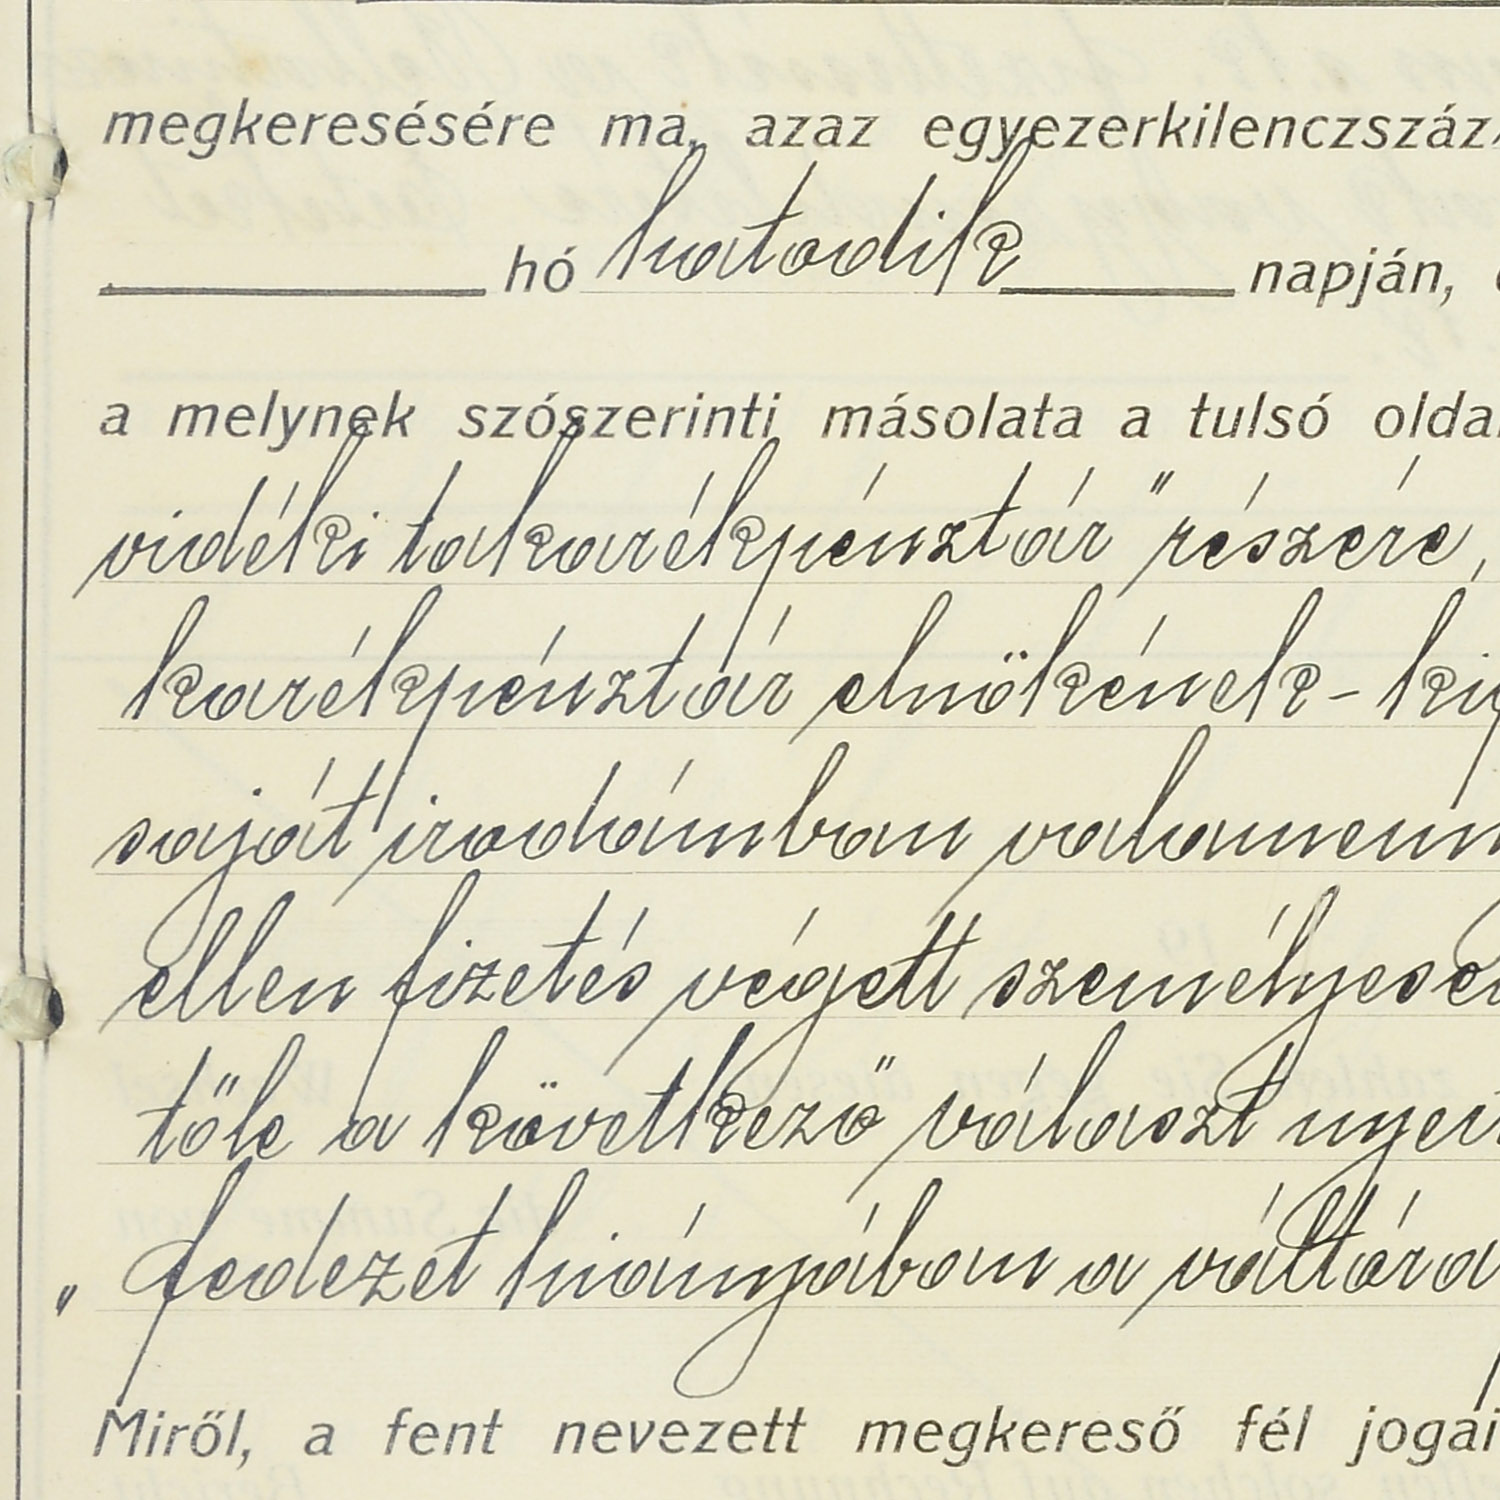 megkeresésére ma, azaz egyezerkilenczszáz
hó hatodik napján,
a melynek szószerinti másolata a tulsó olda
vidéki takarékpénztár" részére,
karékpénztár elnökének - ki
saját irodámban valamenn
ellen fizetés végett személyese
tőle a következő választ nyer
„ fedezet hiányában a váltóra
Miről, a fent nevezett megkereső fél jogai